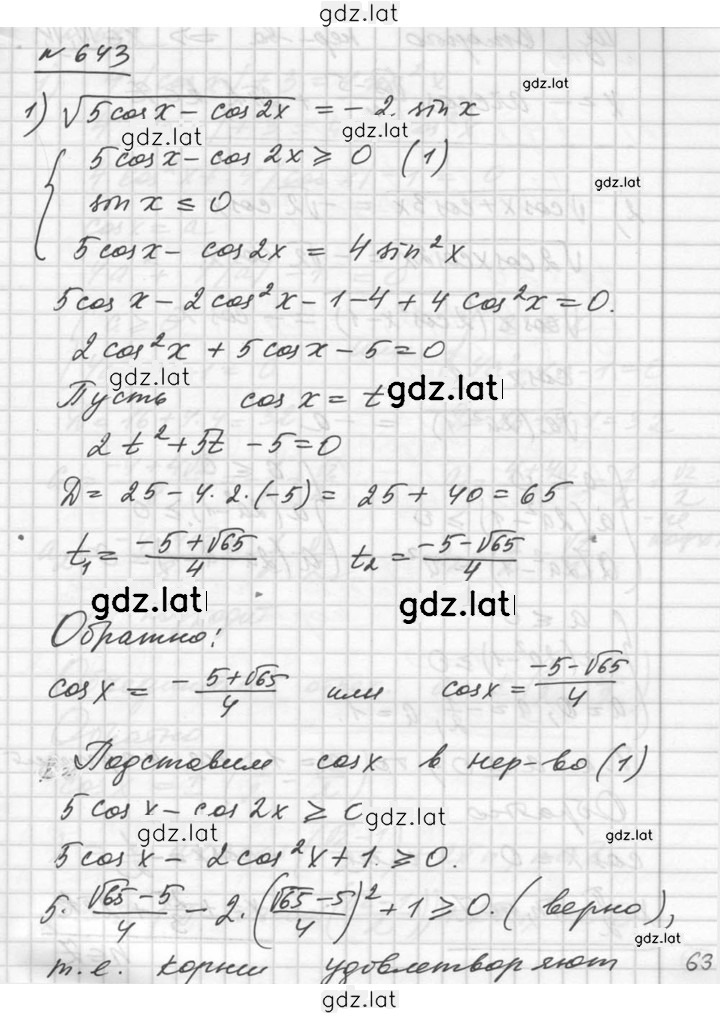 gdz.lat
№ 643
gdz.lat
1) √(5cos x - cos 2x) = -2. sin x
gdz.lat gdz.lat
{ 5cos x - cos 2x ≥ 0 (1)
gdz.lat
sin x ≤ 0
5cos x - cos 2x = 4 sin² x
5cos x - 2cos² x - 1 - 4 + 4 cos² x = 0.
2 cos² x + 5cos x - 5 = 0
gdz.lat
Пусть cos x = t gdz.lat
2t² + 5t - 5 = 0
Д = 25 - 4·2·(-5) = 25 + 40 = 65
t₁ = (-5+√65)/4 t₂ = (-5-√65)/4
gdz.lat gdz.lat
Обратно:
cos x = -(5+√65)/4 или cos x = (-5-√65)/4
Подставим cos x в нер-во (1)
5 cos x - cos 2x ≥ 0
gdz.lat gdz.lat
gdz.lat
5cos x - 2cos² x + 1 ≥ 0.
5·(√65-5)/4 - 2·((√65-5)/4)² + 1 ≥ 0. (верно),
gdz.lat
т.е. корни удовлетворяют 63
gdz.lat